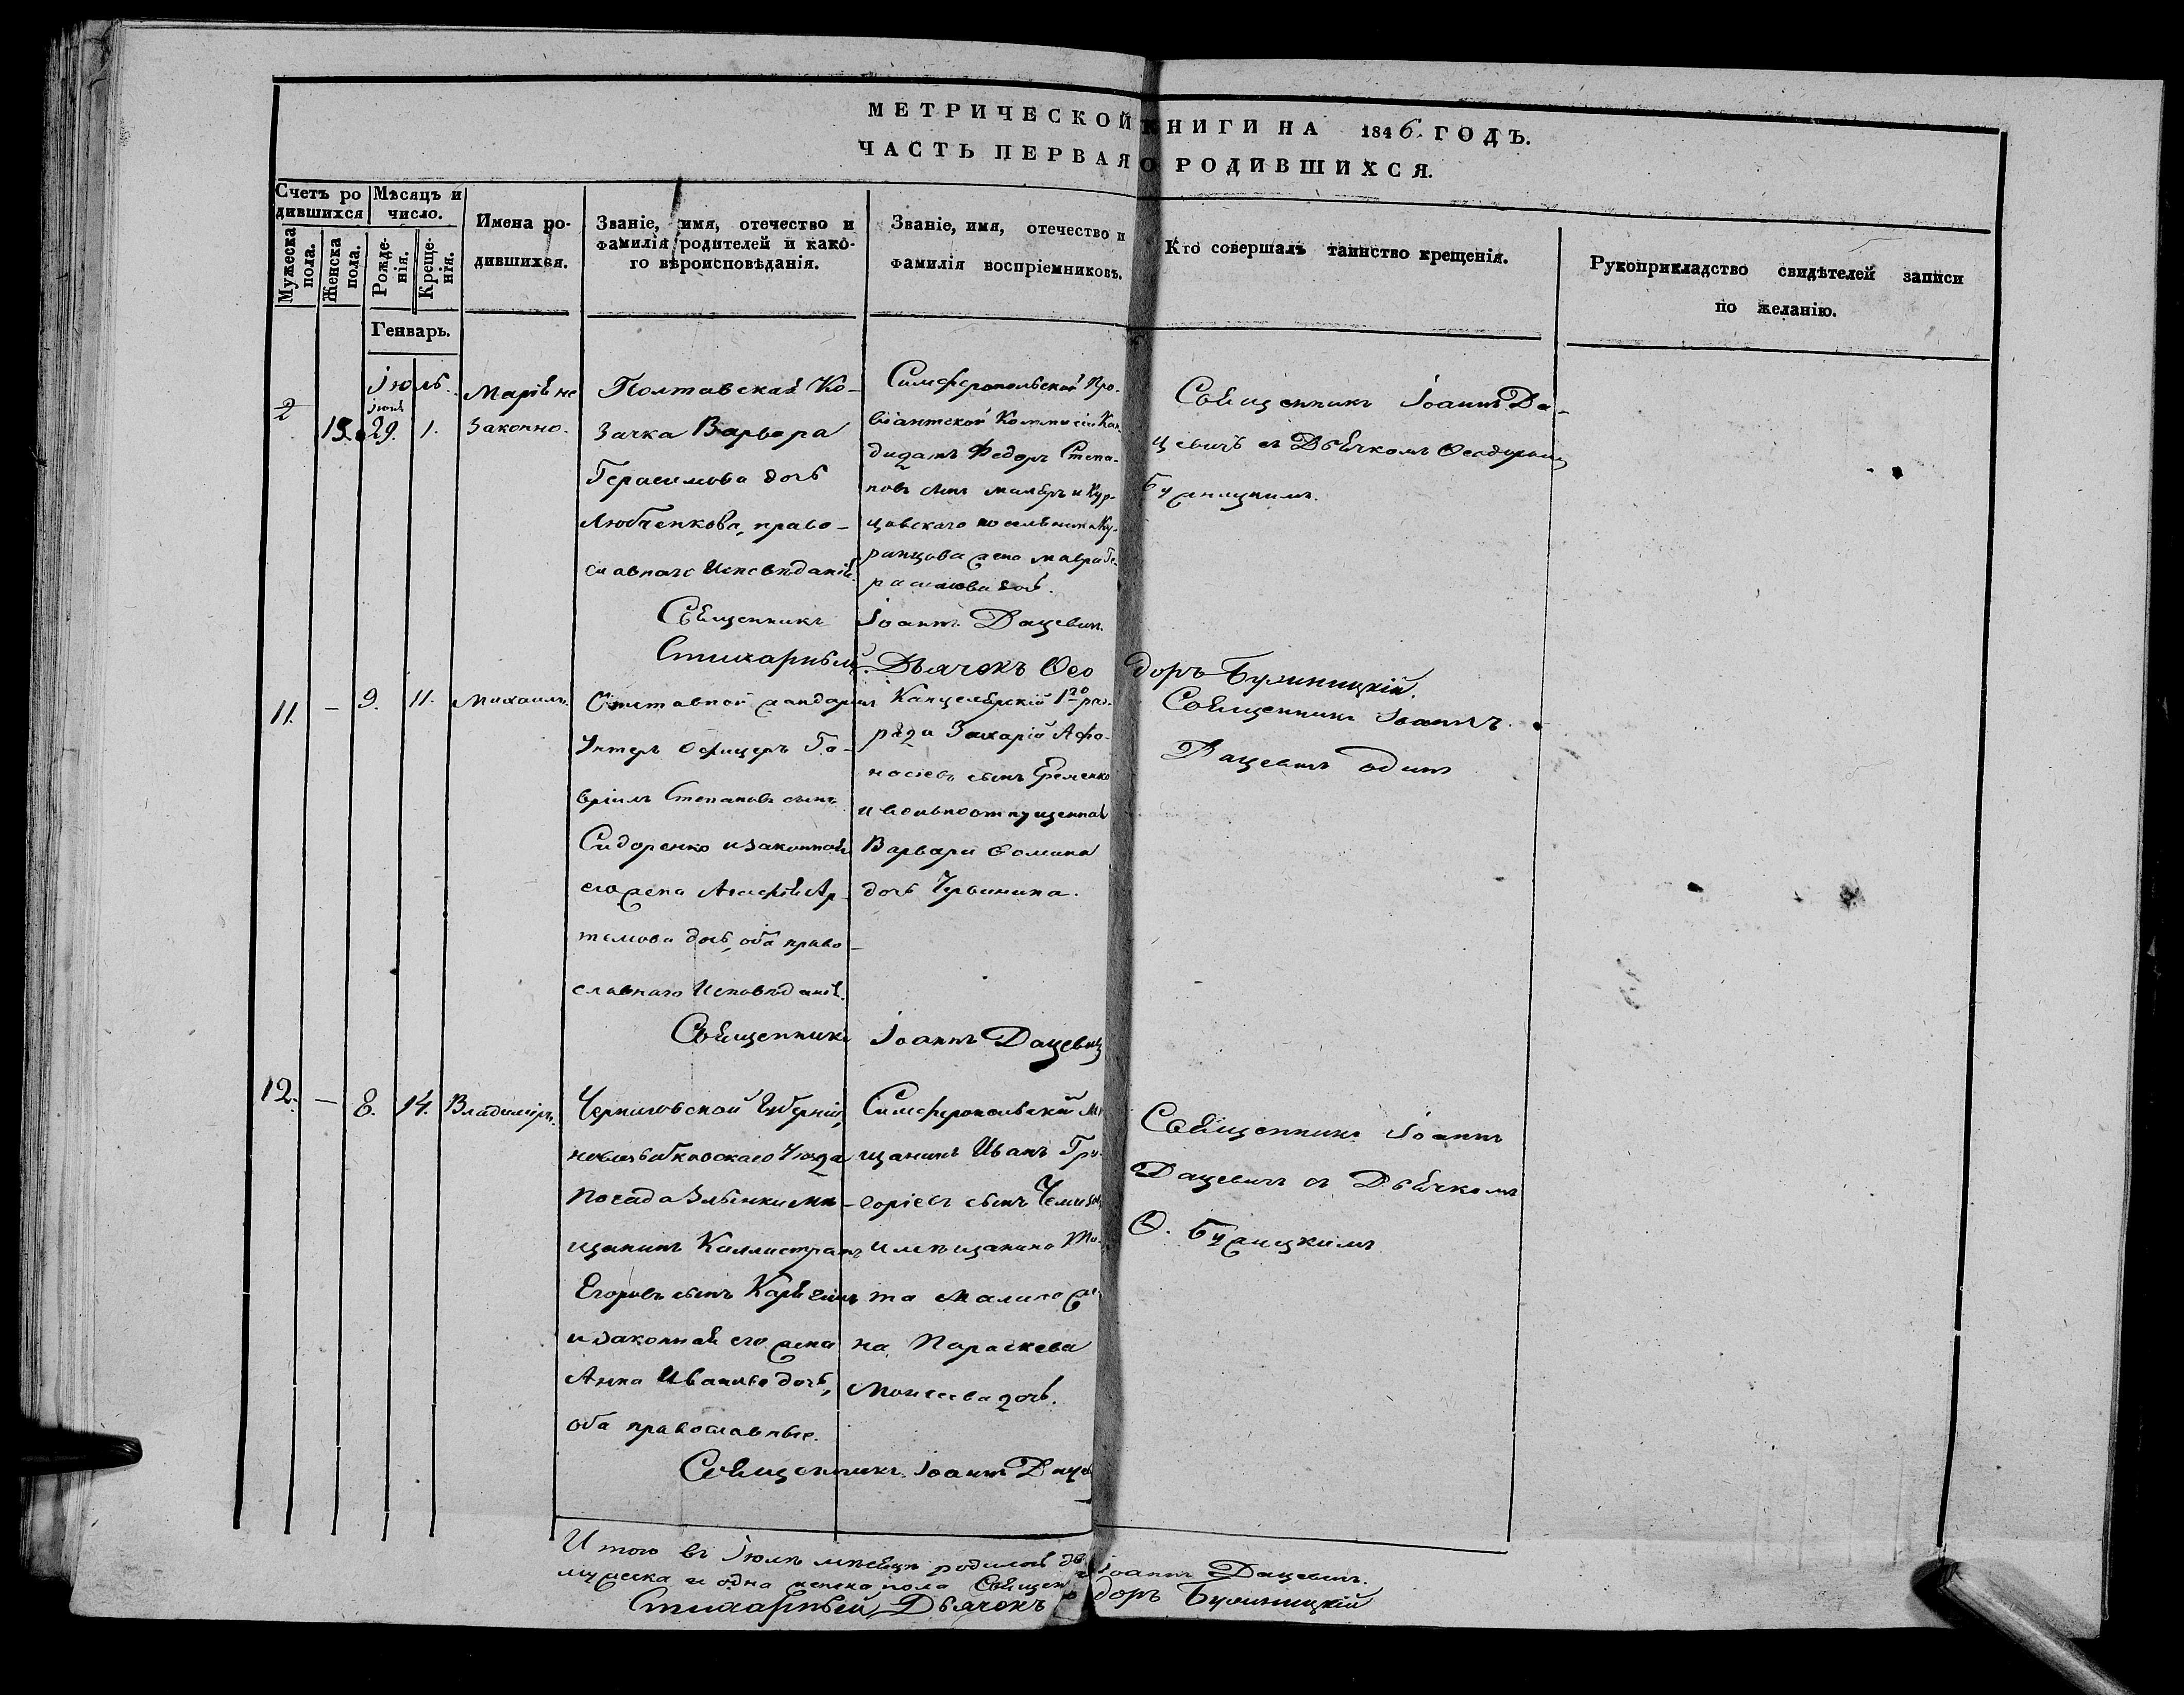 МЕТРИЧЕСКОЙ КНИГИ НА 1846. ГОДЪ.
ЧАСТЬ ПЕРВАЯ О РОДИВШИХСЯ.
Счетъ ро
дившихся
Мужеска
пола.
Женска
пола.
Мѣсяцъ и
число.
Рожде-
нія.
Креще-
нія.
Генварь.
Имена ро-
дившихся.
Званіе, имя, отечество и
фамилія родителей и како-
го вѣроисповѣданія.
Званіе, имя, отечество и
фамилія воспріемниковъ.
Кто совершалъ таинство крещенія.
Рукоприкладство свидѣтелей записи
по желанію.
Іюль.
2
Іюня
29.
1.
Марія не
законно.
Полтавская Ко-
зачка Варвара
Герасимова дочь
Любченкова, право-
славнаго Исповѣданія.
Симферопольской Про-
віантской Коммисіи Кан-
дидатъ Федоръ Степа-
новъ сынъ
ранцова жена Мавра Ге-
расимова дочь.
Священникъ Іоаннъ Да-
цевичъ съ Дьячкомъ Ѳеодоромъ
Бужницкимъ.
Священникъ Іоаннъ Дацевичъ.
Стихарный Дьячокъ Ѳеодоръ Бужиницкій.
11.
—
9.
11.
Михаилъ.
Отставной жандармъ
Унтеръ Офицеръ Га-
вріилъ Степановъ сынъ
Сидоренко и законная
его жена Агафія Ар-
темова дочь, оба право-
славнаго Исповѣданія.
Канцелярскій 1го раз-
ряда Захарій Афа-
насіевъ сынъ Еременко
и вольноотпущенная
Варвара Фомина
дочь Червинина.
Священникъ Іоаннъ
Дацевичъ одинъ
Священникъ Іоаннъ Дацевичъ
12.
—
8.
14.
Владиміръ.
Черниговской Губерніи,
новозыбковскаго Уѣзда
посада Злынки мѣ-
щанинъ Каллистратъ
Егоровъ сынъ
и законная его жена
Анна Иванова дочь,
оба православные.
Симферопольскій мѣ
щанинъ Иванъ Гри-
горіевъ сынъ
и мѣщанина Ти-
та Малина же-
на Параскева
Моисеева дочь.
Священникъ Іоаннъ
Дацевичъ съ Дьячкомъ
Ѳ. Бужицкимъ
Священникъ Іоаннъ Дацев
Итого въ Іюлѣ мѣсяцѣ родилось два
мужеска и одна женска пола Священ Іоаннъ Дацевичъ.
Стихарный Дьячокъ Ѳеодоръ Бужиницкій